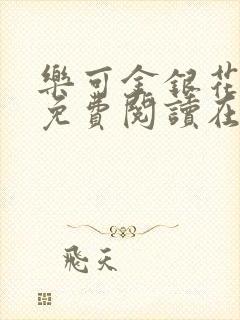 樂可金銀花
免費閱讀在
飛天